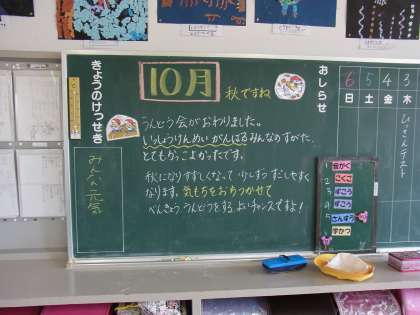 10月
秋ですね
きょうのけっせき
みんな元気
うんどう会がおわりました。
いっしょうけんめいがんばるみんなのすがた、
とてもかっこよかったです。
秋になりすずしくなって
すごしやすく
なります。気もちをおちつかせて
べんきょう うんどうをする、よいチャンスですよ!
おしらせ
6 5 4 3
日 土 金 木
テスト
1 音がく
2 こくご
3 ずこう
4 ずこう
5 さんすう
せいかつ